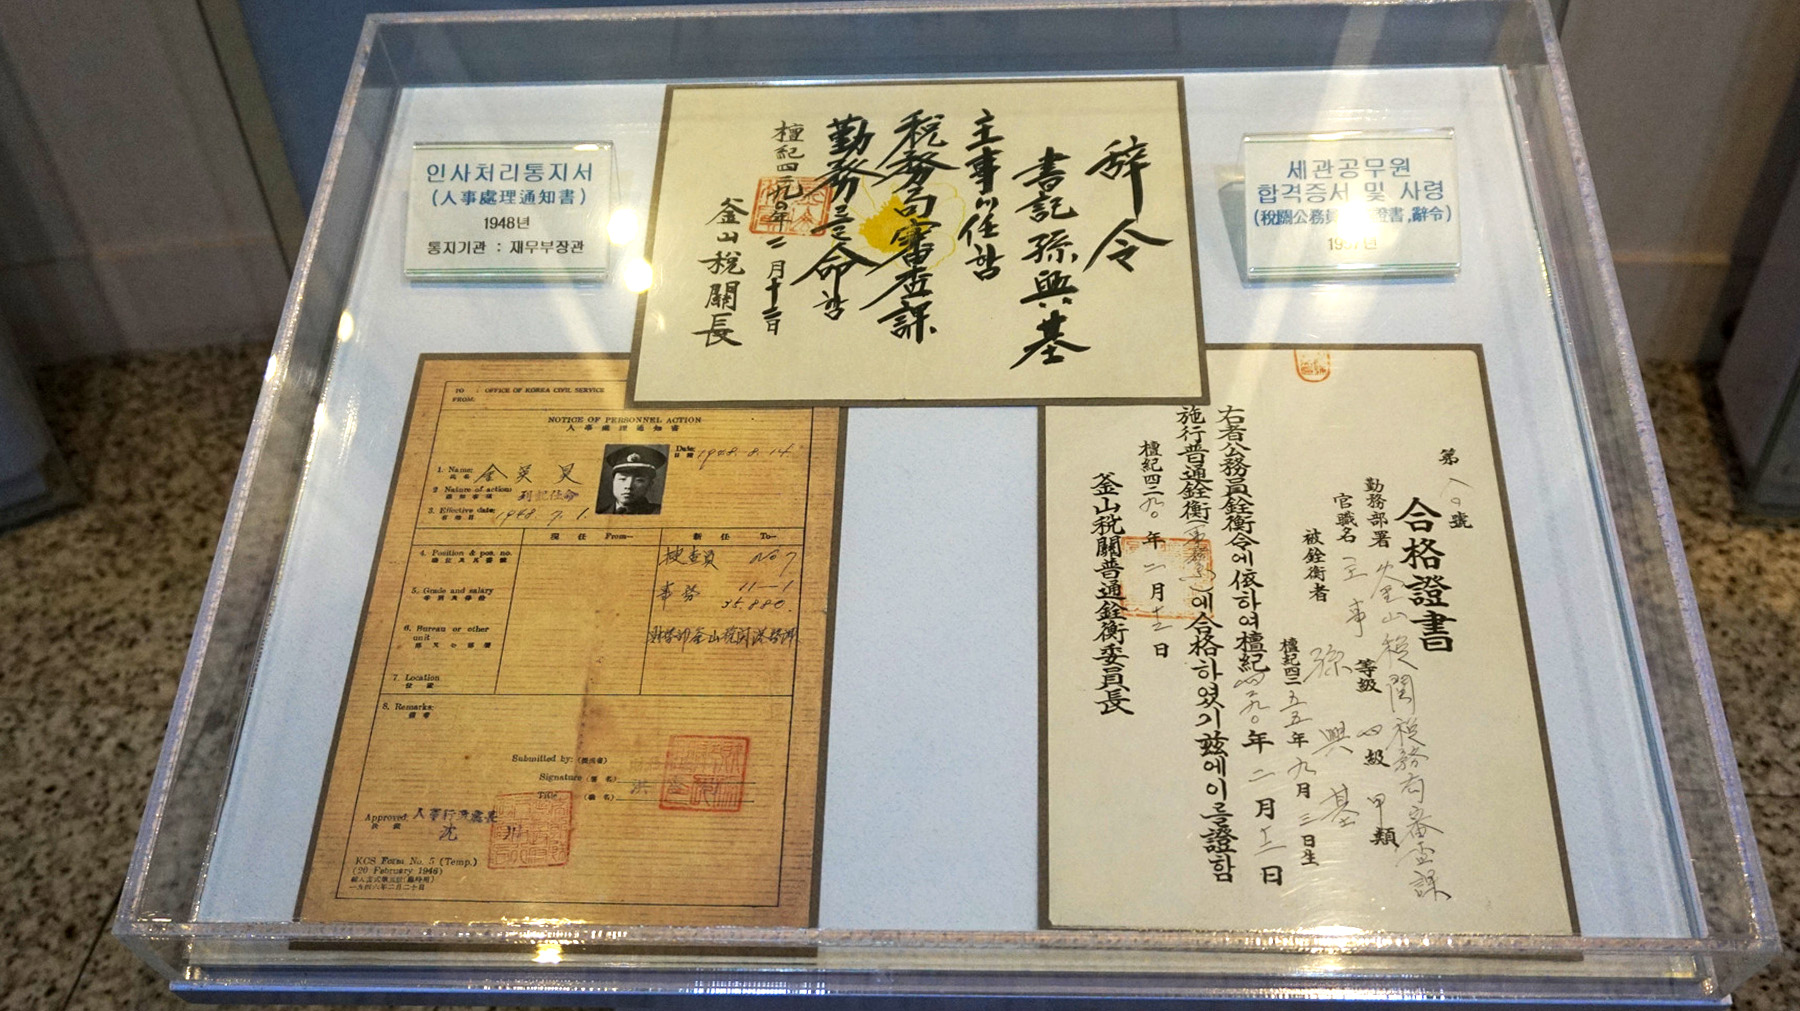 인사처리통지서
(人事處理通知書)
1948년
통지기관 : 재무부장관
辞令
書記 孫興基
主事에 任함
税務官審査課
勤務를 命함
檀紀四二九〇年 二月十三日
釜山税關長
세관공무원
합격증서 및 사령
(稅關公務員 證書,辭令)
TO : OFFICE OF KOREA CIVIL SERVICE
FROM:
NOTICE OF PERSONNEL ACTION
人事處理通知書
Date: 1948. 8. 14
日附
1. Name: 金英昊
氏名
2 Nature of action:
3. Effective date: 1948. 7. 1.
現任 From—
新任 To—
4. Position & pos. no.
檢査員 No 7
5. Grade and salary
事務 11—1
35.880.
6. Bureau or other
unit
7. Location
位置
8. Remarks:
備考
Submitted by: (提出者)
Signature (署名)
Title (職名)
Approved: 人事行政處長
決裁
KCS Form No. 5 (Temp.)
(20 February 1946)
一九四六年二月二十日
第 八〇 號
合格證書
勤務部署 釜山税関税務官審査課
官職名 主事 等級 四級 甲類
被銓衡者 孫興基
檀紀四二五五年九月三日生
右者公務員銓衡令에依하여檀紀四二九〇年二月十二日
施行普通銓衡에合格하였기玆에이를證함
檀紀四二九〇年 二月十三日
釜山税關普通銓衡委員長